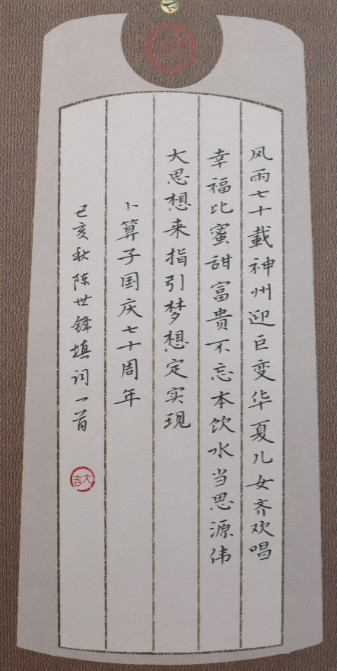 风雨七十载神州迎巨变华夏儿女齐欢唱
幸福比蜜甜富贵不忘本饮水当思源伟
大思想来指引梦想定实现
卜算子国庆七十周年
己亥秋陈世锋填词一首